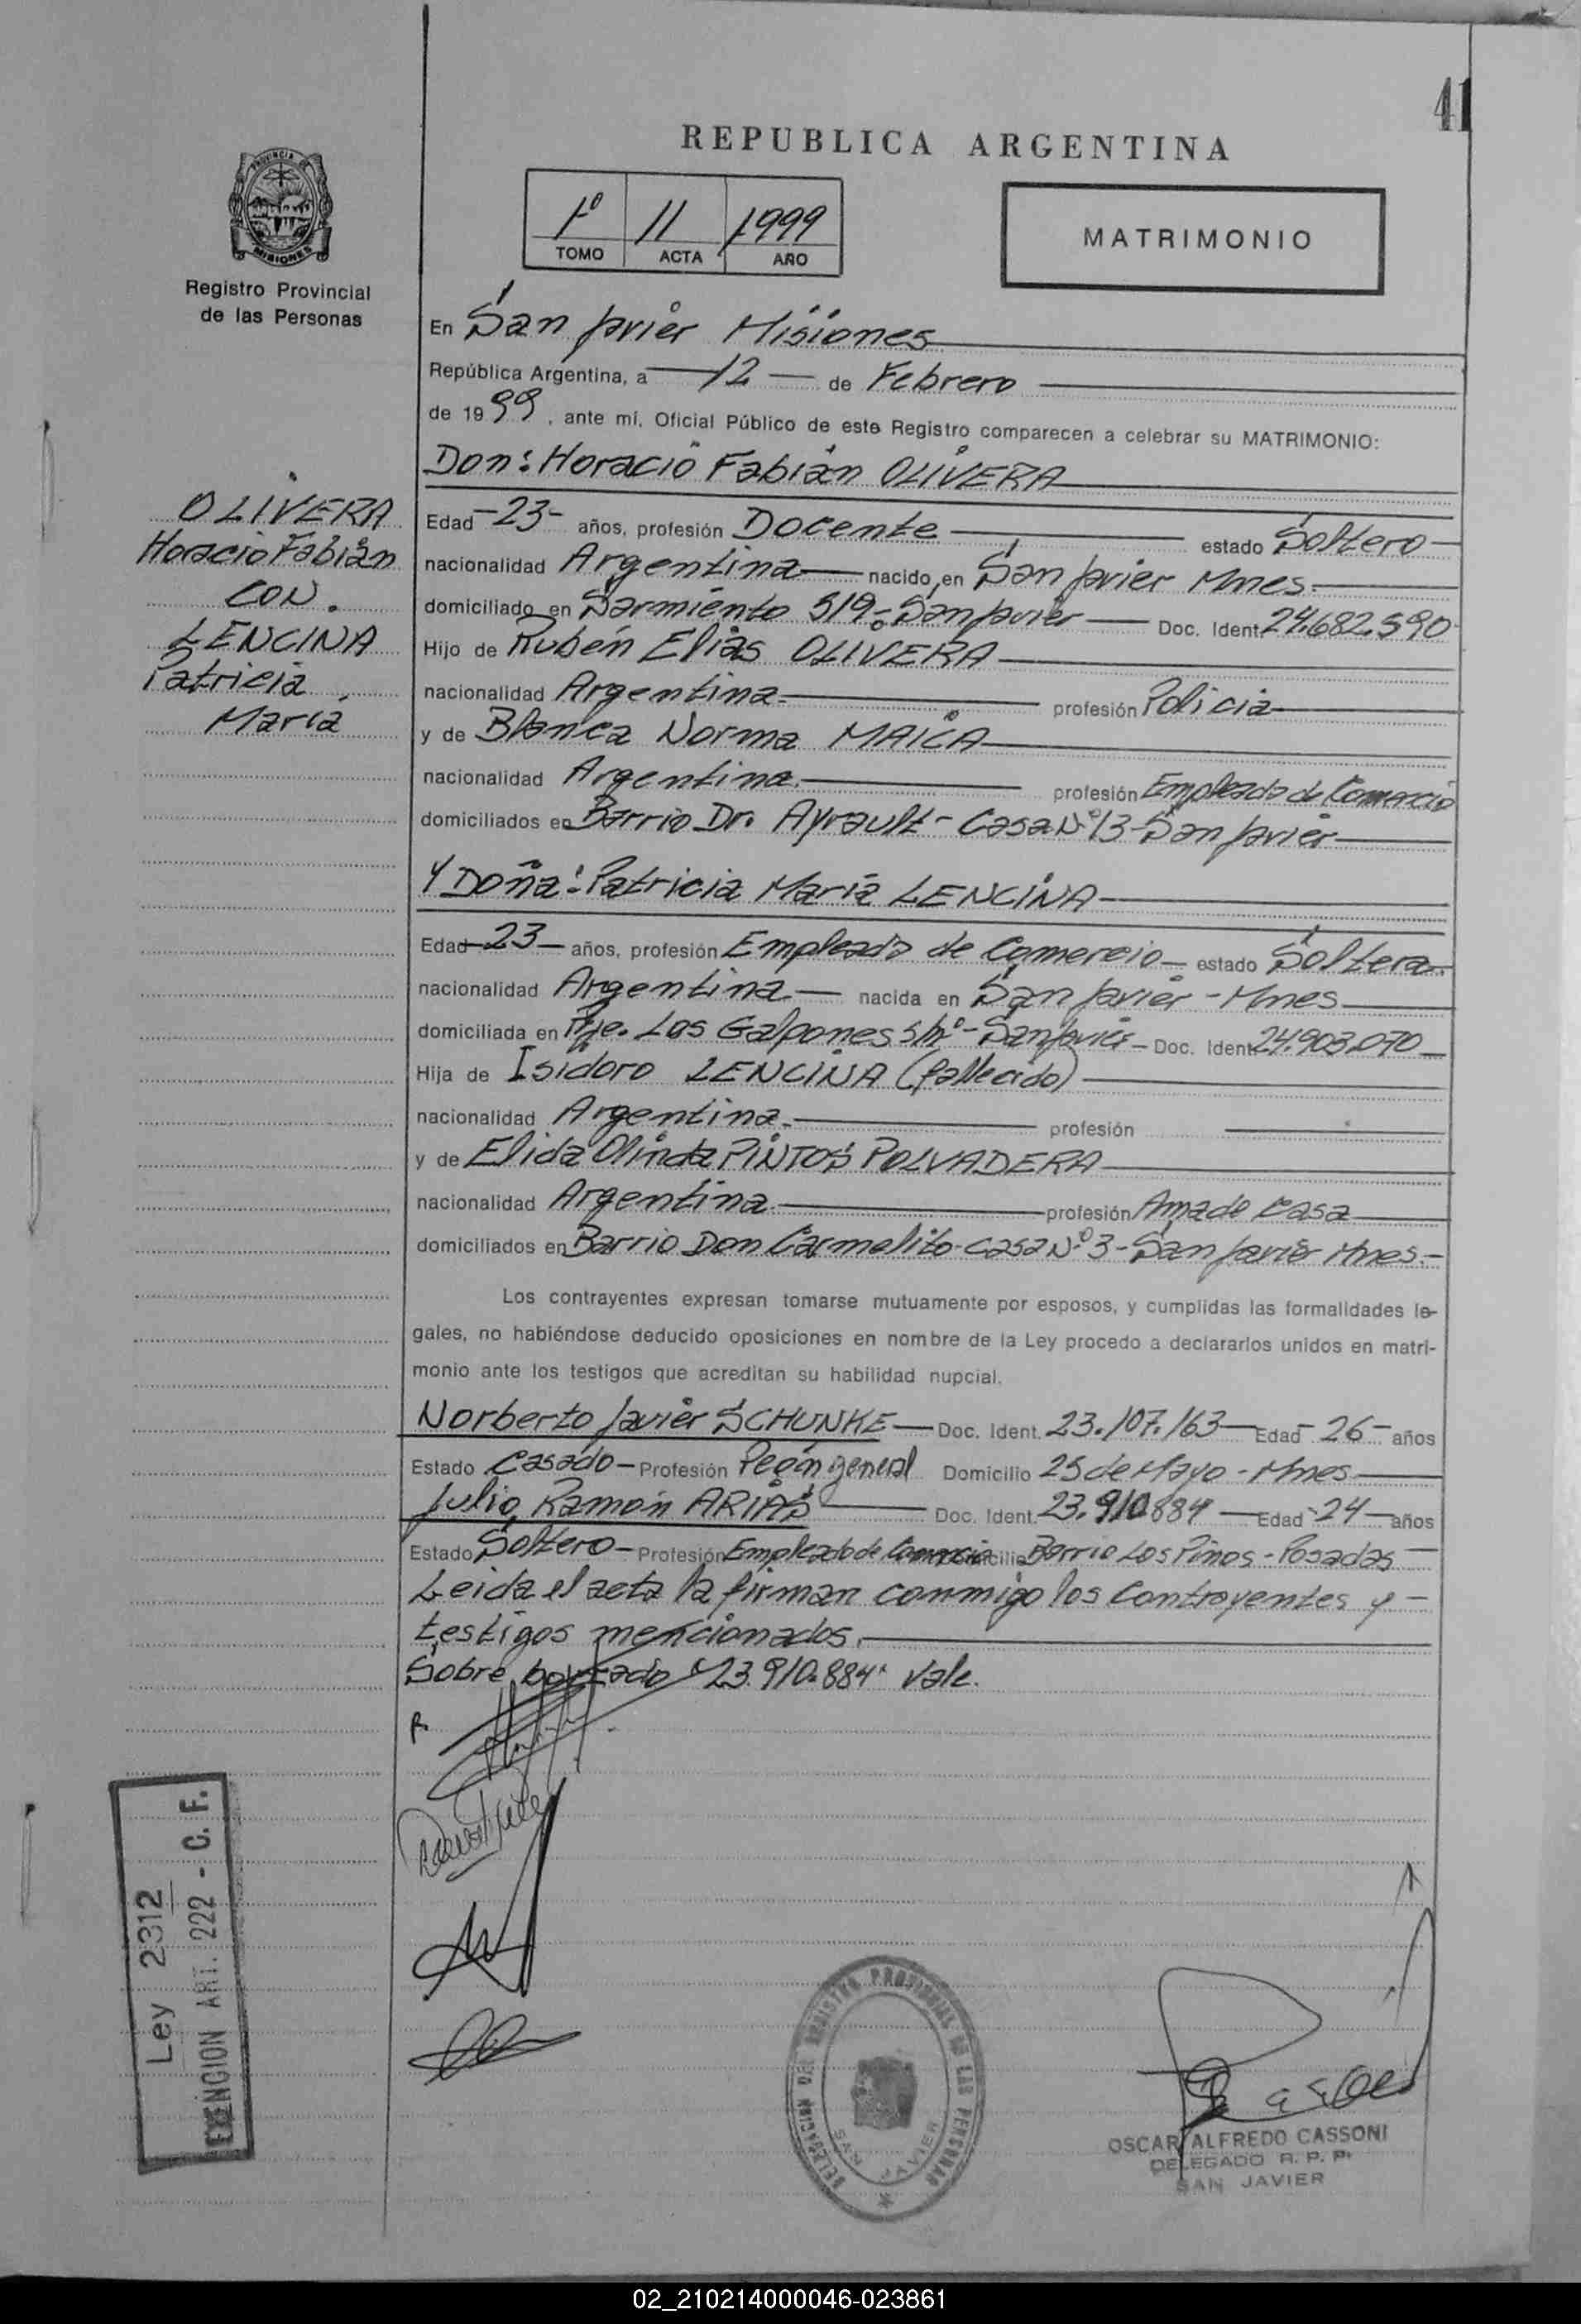 41
REPUBLICA ARGENTINA
PROVINCIA DE
MISIONES
Registro Provincial
de las Personas
1º 11 1999
TOMO ACTA AÑO
MATRIMONIO
En San Javier Misiones
República Argentina, a 12 de Febrero
de 1999, ante mí, Oficial Público de este Registro comparecen a celebrar su MATRIMONIO:
Don: Horacio Fabián OLIVERA
OLIVERA
Horacio Fabián
CON.
LENCINA
Patricia
María
Edad -23- años, profesión Docente estado Soltero
nacionalidad Argentina nacido en San Javier Mnes.
domiciliado en Sarmiento 519- San Javier Doc. Ident. 24.682.590
Hijo de Rubén Elias OLIVERA
nacionalidad Argentina. profesión Policia
y de Blanca Norma MAICA
nacionalidad Argentina. profesión Empleada de Comercio
domiciliados en Barrio Dr. Ayrault - Casa Nº 13 - San Javier
Y Doña: Patricia María LENCINA
Edad 23 años, profesión Empleada de Comercio estado Soltera.
nacionalidad Argentina nacida en San Javier - Mnes
domiciliada en Pje. Los Galpones s/nº - San Javier - Doc. Ident. 24.903.070
Hija de Isidoro LENCINA (fallecido)
nacionalidad Argentina. profesión
y de Elida Olinda PINTOS POLVADERA
nacionalidad Argentina. profesión Ama de Casa
domiciliados en Barrio Don Carmelito - Casa Nº 3 - San Javier Mnes.-
Los contrayentes expresan tomarse mutuamente por esposos, y cumplidas las formalidades le-
gales, no habiéndose deducido oposiciones en nombre de la Ley procedo a declararlos unidos en matri-
monio ante los testigos que acreditan su habilidad nupcial.
Norberto Javier SCHUNKE Doc. Ident. 23.107.163 Edad 26 años
Estado Casado - Profesión Peón general Domicilio 25 de Mayo - Mnes
Julio Ramón ARIAS Doc. Ident. 23.910.884 Edad 24 años
Estado Soltero - Profesión Empleado de Comercio Domicilio Barrio Los Pinos - Posadas
Leida el acta la firman conmigo los Contrayentes y -
testigos mencionados.
Sobre borrado "23.910.884" Vale.
Ley 2312
EXENCION ART. 222 - C. F.
DELEGACION DEL REGISTRO PROVINCIAL DE LAS PERSONAS
SAN JAVIER
OSCAR ALFREDO CASSONI
DELEGADO R. P. P.
SAN JAVIER
02_210214000046-023861